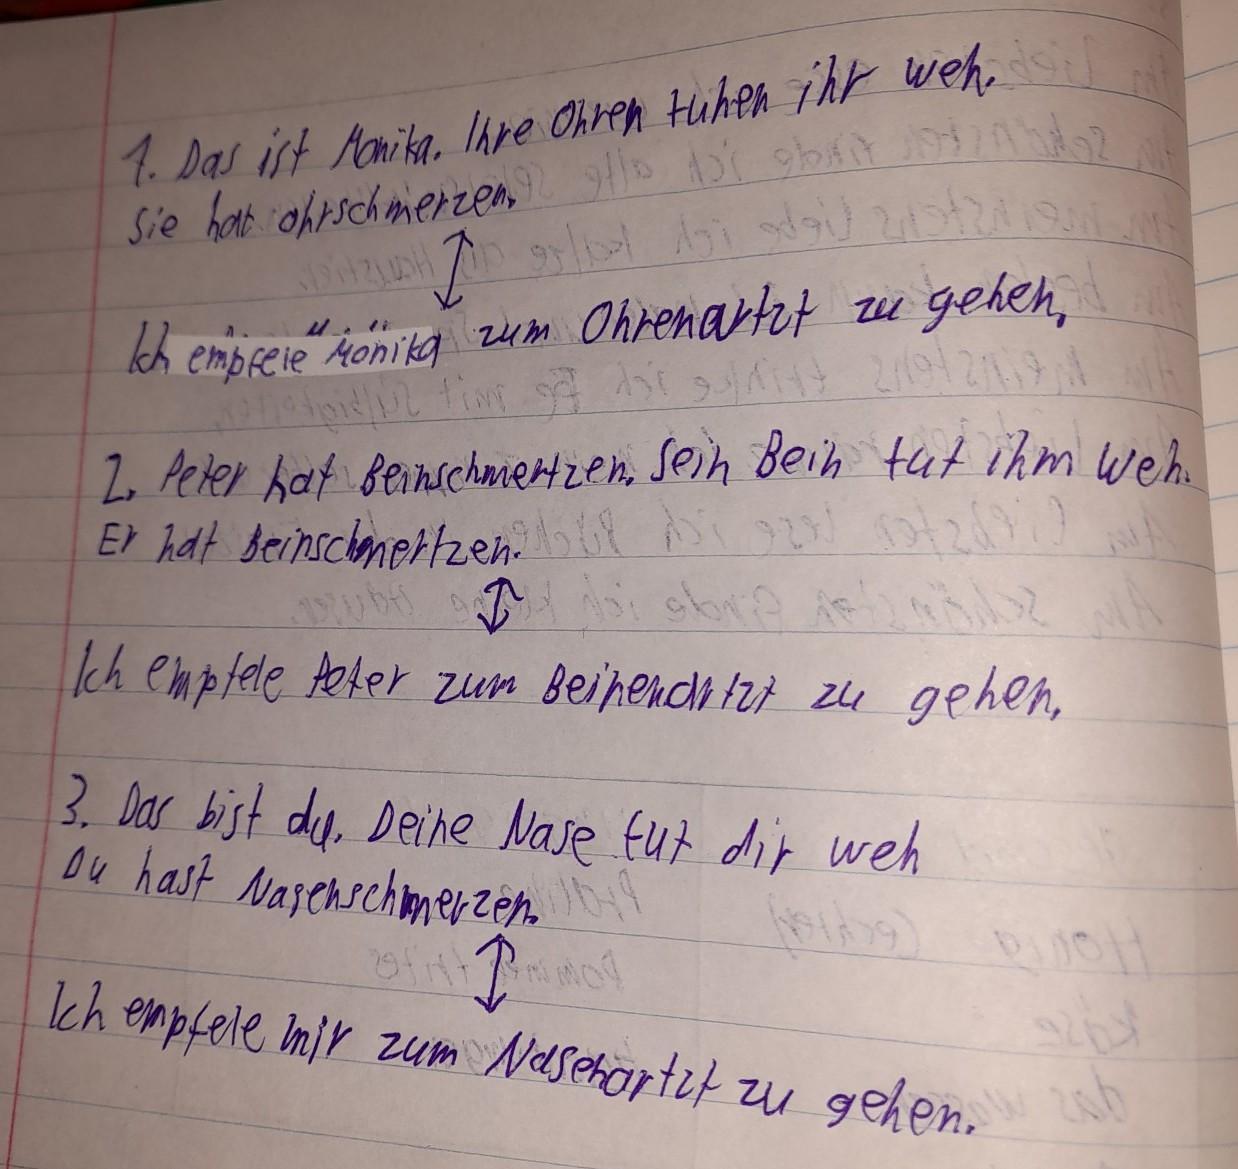 1. Das ist Monika. Ihre Ohren tuhen ihr weh.
Sie hat ohrschmerzen.
Ich empfele Monika zum Ohrenartzt zu gehen.
2. Peter hat Beinschmertzen. Sein Bein tut ihm weh.
Er hat Beinschmertzen.
Ich empfele Peter zum Beinenartzt zu gehen.
3. Das bist du. Deine Nase tut dir weh
Du hast Nasenschmerzen.
Ich empfele mir zum Nasenartzt zu gehen.